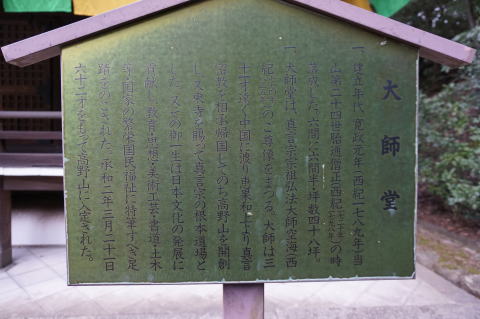 大師堂
一、建立年代、寛政元年(西紀一七八九年)当
山第二十四世船遍僧正(西紀 の時
落成した。六間に六間半・坪数四十八坪。
一、大師堂は、真言宗宗祖弘法大師空海(西
紀 のご尊像をまつる。大師は三
十一才で 中国に渡り恵果和上より真言
密教を相承帰国してのち高野山を開創
し又東寺を賜って真言宗の根本道場と
した。又この御一生は日本文化の発展に
貢献し教育・思想・美術工芸・書道・土木
等、国家の繁栄国民福祉に特筆すべき足
跡をのこされ、承和二年三月二十一日
六十二才をもって高野山に入定された。